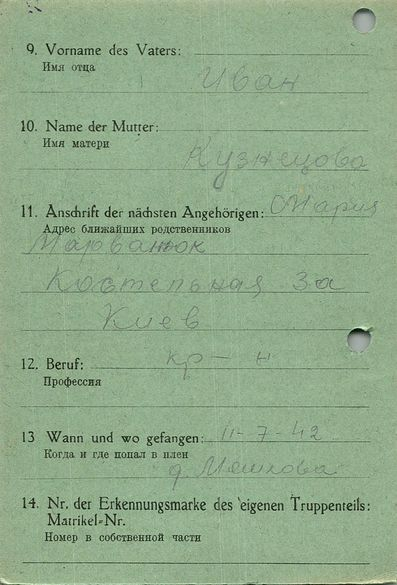 9. Vorname des Vaters:
Имя отца
Иван
10. Name der Mutter:
Имя матери
Кузнецова
11. Anschrift der nächsten Angehörigen: Мария
Адрес ближайших родственников
Костельная 3а
Киев
12. Beruf: кр-н
Профессия
13 Wann und wo gefangen: 11-7-42
Когда и где попал в плен
д.
14. Nr. der Erkennungsmarke des eigenen Truppenteils:
Matrikel-Nr.
Номер в собственной части